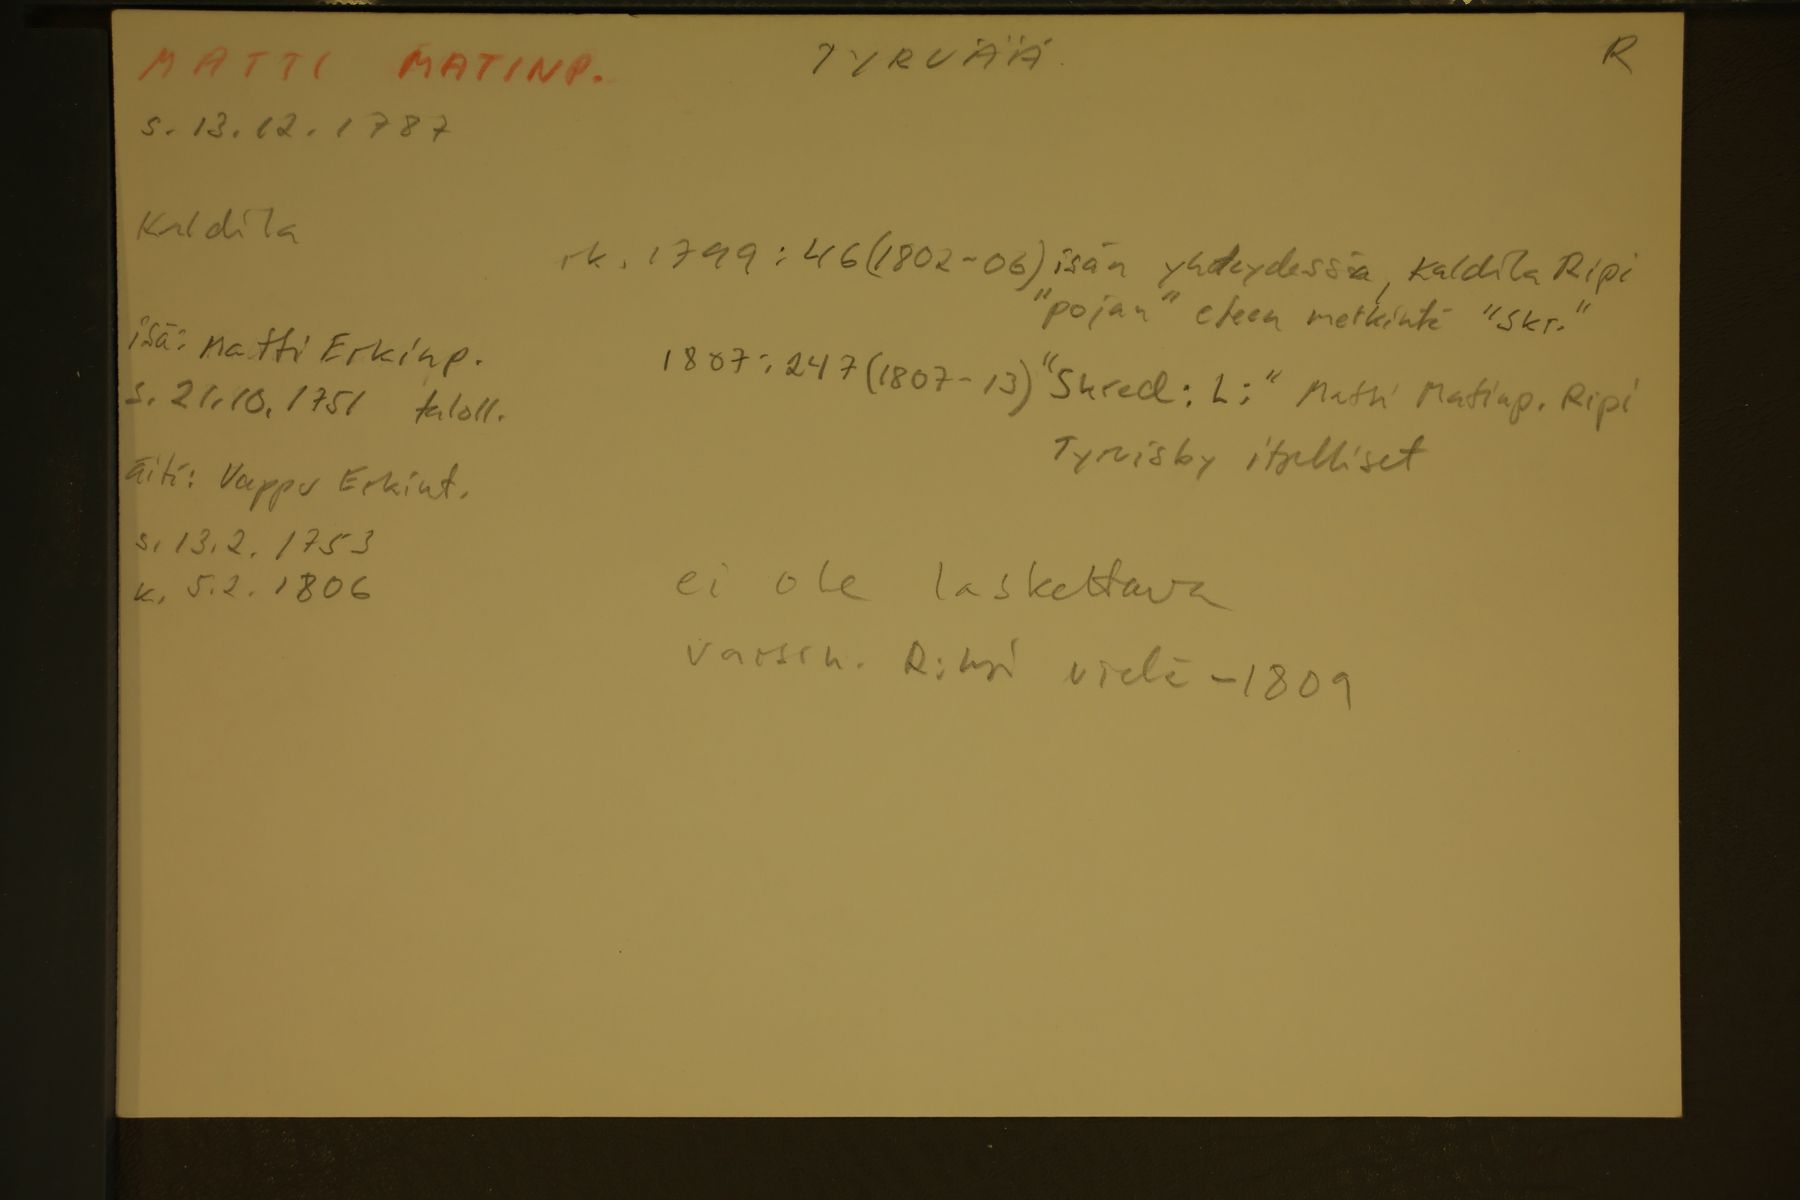 MATTI MATINP. TYRVÄÄ R
s. 13.12.1787
Kaldila
rk. 1799:46 (1802-06) isän yhteydessä, Kaldila Ripi
"pojan" eteen merkintä "Skr."
isä: Matti Erkinp.
s. 21.10.1751 taloll.
1807:247 (1807-13) "Skred: L:" Matti Matinp. Ripi
Tyrvisby itselliset
äiti: Vappu Erkint.
s. 13.2.1753
k. 5.2.1806
ei ole laskettava
vielä -1809